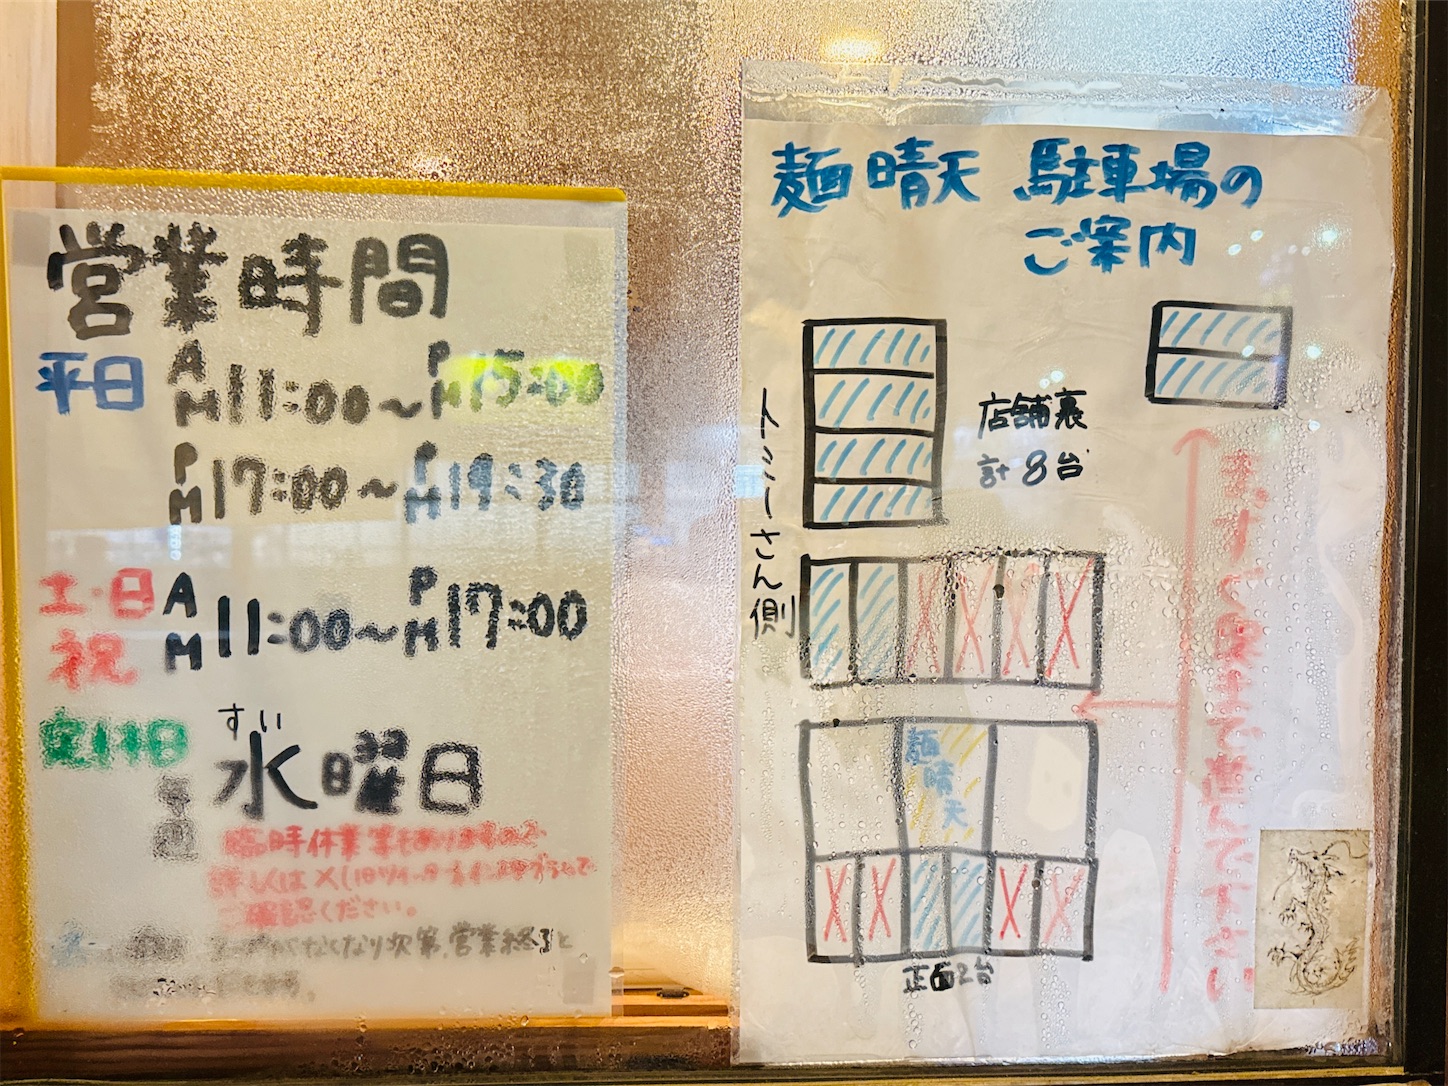 営業時間
平日 AM11:00〜PM15:00
PM17:00〜PM19:30
土・日祝 AM11:00〜PM17:00
定休日 すい
水曜日
臨時休業等もありますので
詳しくはX(旧ツイッター)インスタグラムで
ご確認ください。
スープがなくなり次第、営業終了と
麺 晴天 駐車場の
ご案内
店舗裏
計8台
さん側
麺晴天
正面2台